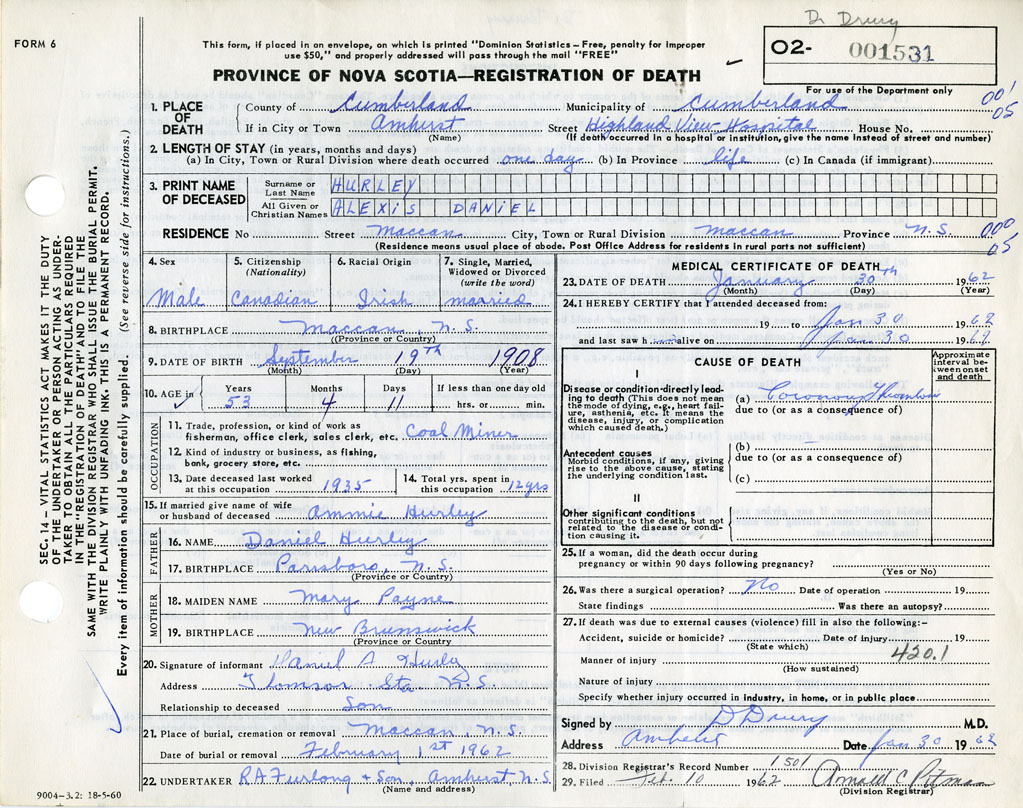 Dr Drury
FORM 6
This form, if placed in an envelope, on which is printed "Dominion Statistics – Free, penalty for improper
use $50," and properly addressed will pass through the mail "FREE"
O2- 001531
For use of the Department only
PROVINCE OF NOVA SCOTIA—REGISTRATION OF DEATH
SEC. 14 – VITAL STATISTICS ACT MAKES IT THE DUTY
OF THE UNDERTAKER OR PERSON ACTING AS UNDER-
TAKER TO OBTAIN ALL THE PARTICULARS REQUIRED
IN THE "REGISTRATION OF DEATH" AND TO FILE THE
SAME WITH THE DIVISION REGISTRAR WHO SHALL ISSUE THE BURIAL PERMIT.
WRITE PLAINLY WITH UNFADING INK. THIS IS A PERMANENT RECORD.
Every item of information should be carefully supplied. (See reverse side for instructions.)
1. PLACE OF DEATH
County of Cumberland Municipality of Cumberland 001
05
If in City or Town Amherst Street Highland View Hospital House No.
(Name) (If death occurred in hospital or institution, give the name instead of street and number)
2. LENGTH OF STAY (in years, months and days)
(a) In City, Town or Rural Division where death occurred one day (b) In Province life (c) In Canada (if immigrant)
3. PRINT NAME OF DECEASED
Surname or Last Name HURLEY
All Given or Christian Names ALEXIS DANIEL
RESIDENCE No Street Maccan City, Town or Rural Division Maccan Province N.S. 000
05
(Residence means usual place of abode. Post Office Address for residents in rural parts not sufficient)
4. Sex Male
5. Citizenship (Nationality) Canadian
6. Racial Origin Irish
7. Single, Married, Widowed or Divorced (write the word) married
8. BIRTHPLACE Maccan, N.S.
(Province or Country)
9. DATE OF BIRTH September 19th 1908
(Month) (Day) (Year)
10. AGE in Years 53 Months 4 Days 11 If less than one day old hrs. or min.
OCCUPATION
11. Trade, profession, or kind of work as
fisherman, office clerk, sales clerk, etc. Coal Miner
12. Kind of industry or business, as fishing,
bank, grocery store, etc.
13. Date deceased last worked
at this occupation 1935
14. Total yrs. spent in
this occupation 12 yrs
15. If married give name of wife
or husband of deceased Ammie Hurley
FATHER
16. NAME Daniel Hurley
17. BIRTHPLACE Parrsboro, N.S.
(Province or Country)
MOTHER
18. MAIDEN NAME Mary Payne
19. BIRTHPLACE New Brunswick
(Province or Country)
20. Signature of informant Daniel A Hurley
Address Thomson Sta N.S.
Relationship to deceased Son
21. Place of burial, cremation or removal Maccan, N.S.
Date of burial or removal February 1st 1962
22. UNDERTAKER R.A. Furlong & Son, Amherst N.S.
(Name and address)
9004–3.2: 18-5-60
MEDICAL CERTIFICATE OF DEATH
23. DATE OF DEATH January 30th 1962
(Month) (Day) (Year)
24. I HEREBY CERTIFY that I attended deceased from:
19 to Jan 30 1962
and last saw him alive on Jan 30 1962
CAUSE OF DEATH
Approximate interval between onset and death
I
Disease or condition directly leading to death (This does not mean the mode of dying, e.g., heart failure, asthenia, etc. It means the disease, injury, or complication which caused death.)
(a) Coronary Thrombosis
due to (or as a consequence of)
Antecedent causes
Morbid conditions, if any, giving rise to the above cause, stating the underlying condition last.
(b) –
due to (or as a consequence of)
(c)
II
Other significant conditions
contributing to the death, but not related to the disease or condition causing it.
25. If a woman, did the death occur during
pregnancy or within 90 days following pregnancy?
(Yes or No)
26. Was there a surgical operation? No Date of operation 19
State findings Was there an autopsy?
27. If death was due to external causes (violence) fill in also the following:–
Accident, suicide or homicide? Date of injury 19
(State which) 420.1
Manner of injury
(How sustained)
Nature of injury
Specify whether injury occurred in industry, in home, or in public place
Signed by D Drury M.D.
Address Amherst Date Jan 30 1962
28. Division Registrar's Record Number 1501
29. Filed Feb. 10 1962 Arnold C Pitman
(Division Registrar)